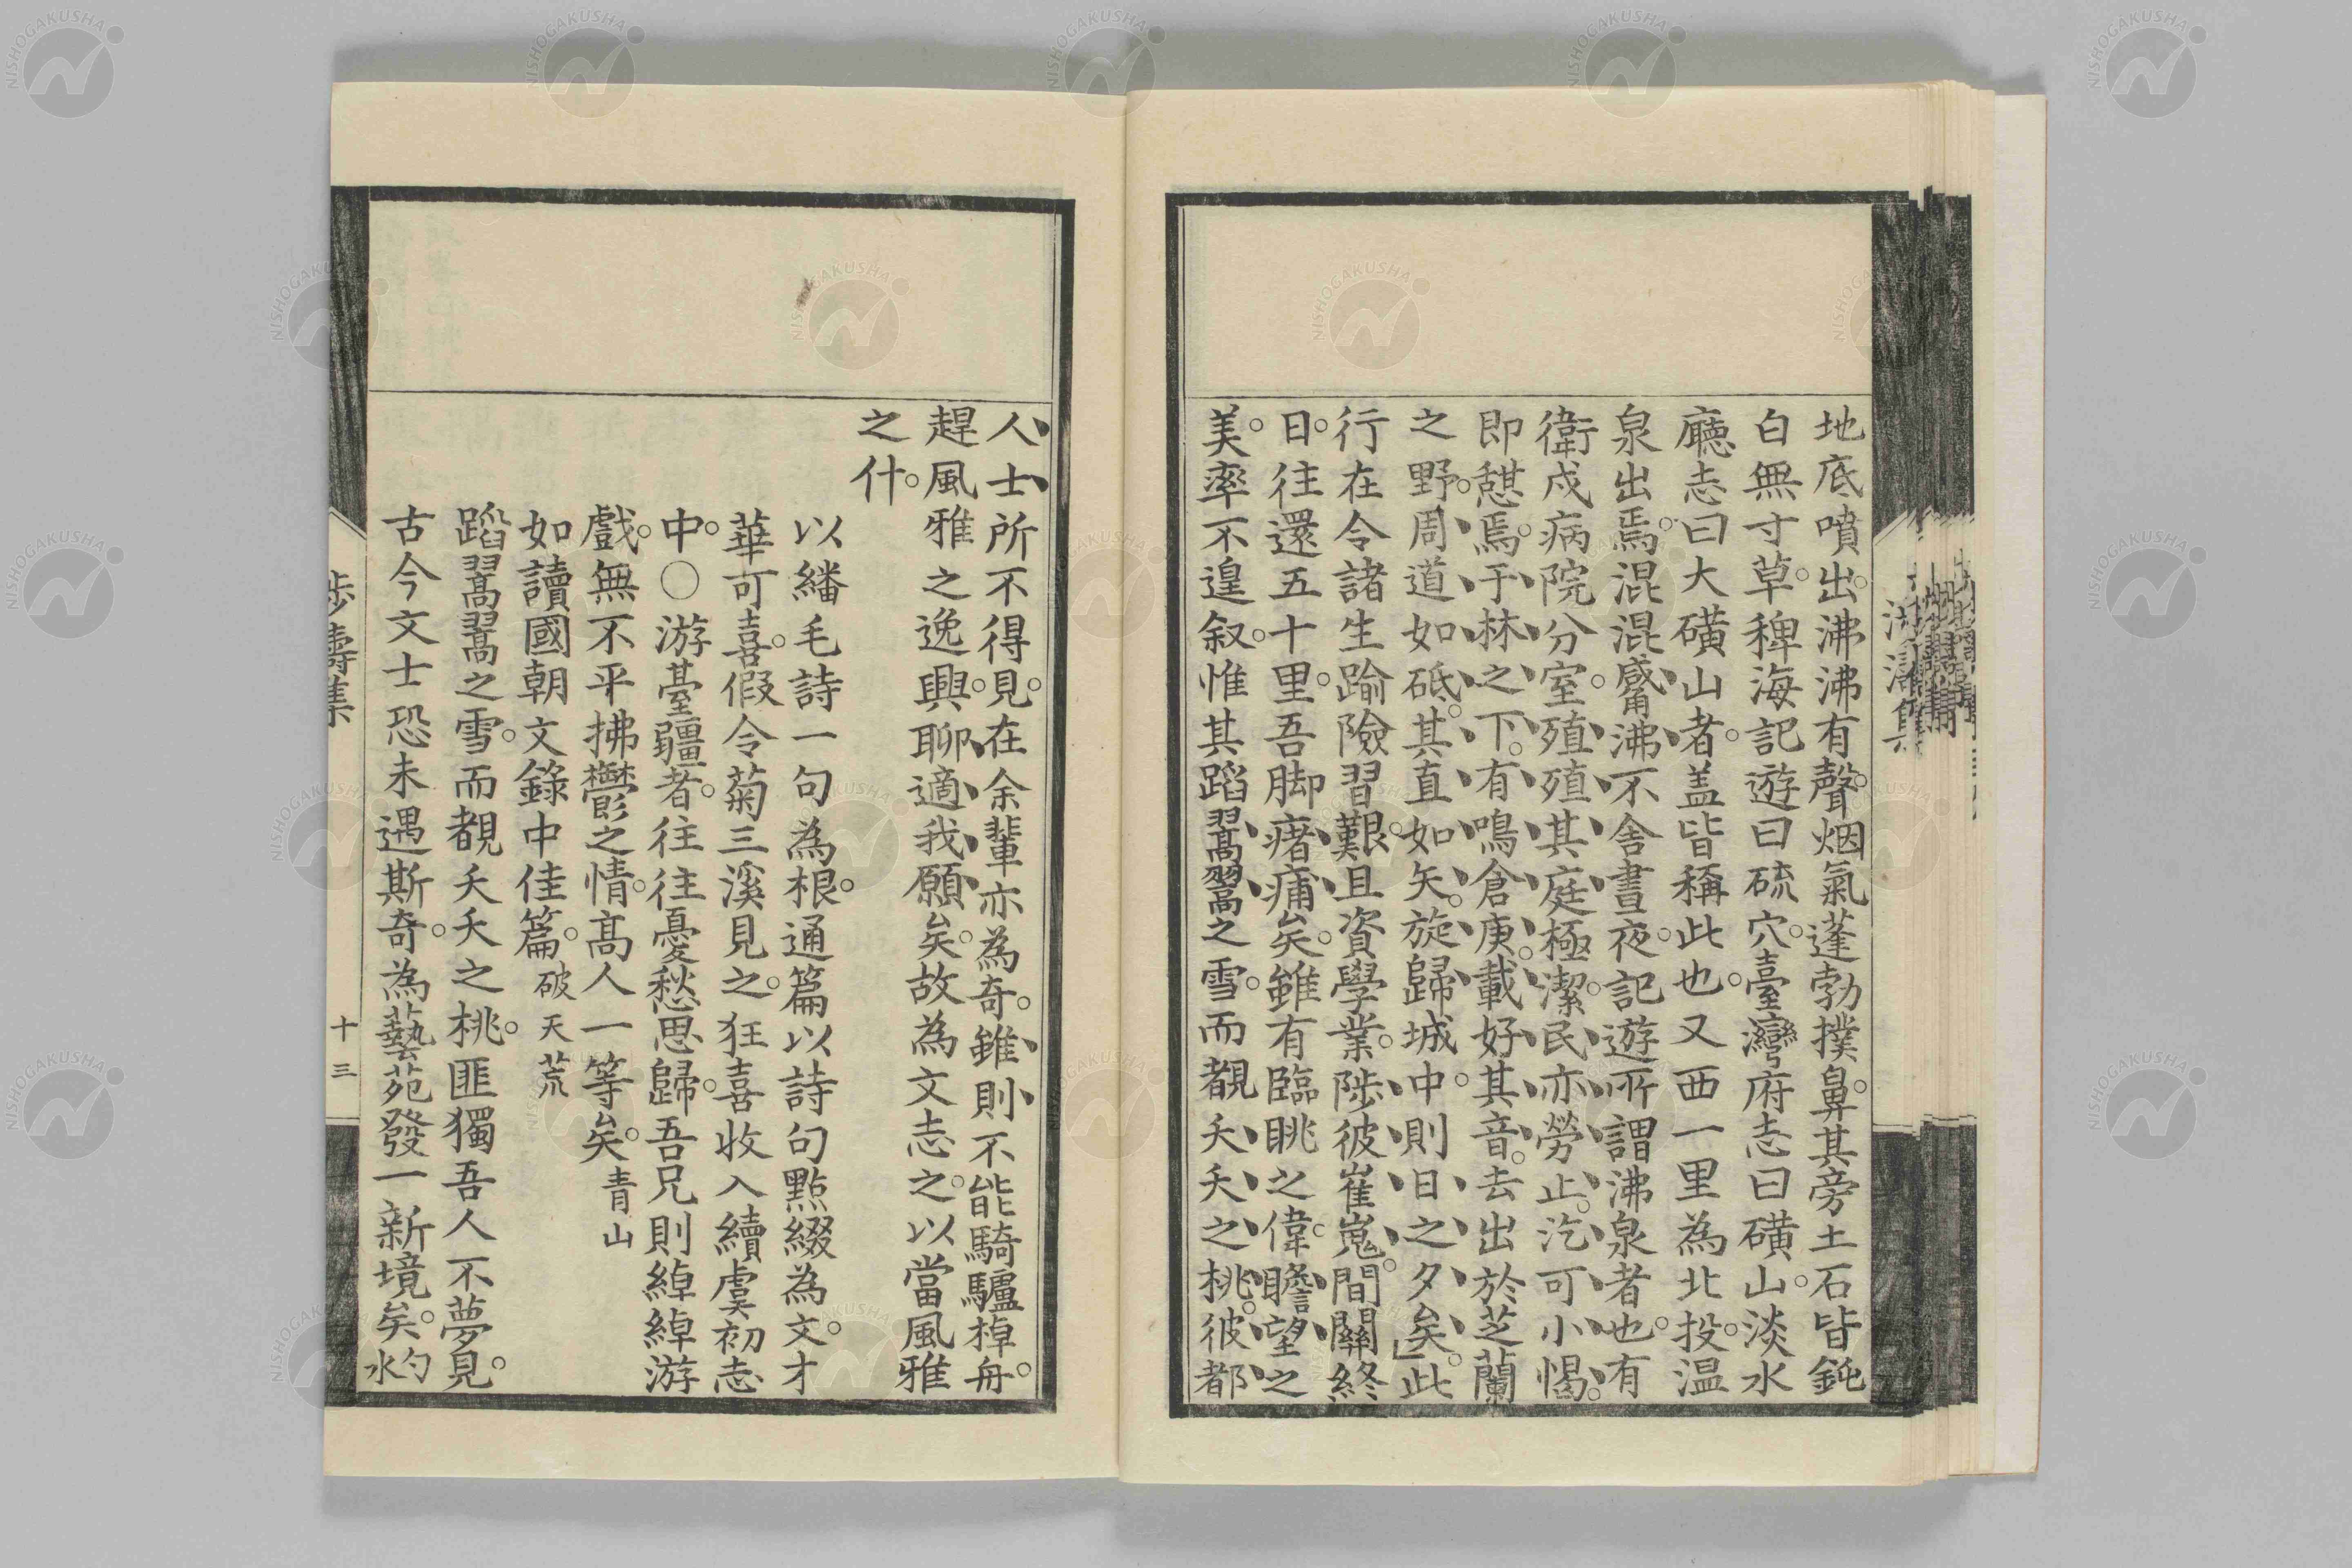 地底噴出。沸沸有聲。烟氣蓬勃撲鼻。其旁土石皆鈍
白無寸草。稗海記遊曰硫穴。臺灣府志曰磺山。淡水
廳志曰大磺山者。盖皆稱此也。又西一里為北投。温
泉出焉。混混觱沸、不舍晝夜。記遊所謂沸泉者也。有
衛戍病院分室。殖殖其庭極潔。民亦勞止。汔可小愒。
即憇焉。于林之下。有鳴倉庚。載好其音。去出於芝蘭
之野。周道如砥。其直如矢。旋歸城中。則日之夕矣。」此
行在令諸生踰險習艱。且資學業。陟彼崔嵬。間關終
日。往還五十里。吾脚瘏痡矣。雖有臨眺之偉。瞻望之
美。率不遑叙。惟其蹈翯翯之雪。而覩夭夭之桃。彼都
人士所不得見。在余輩亦為奇。雖則不能騎驢棹舟。
趕風雅之逸興。聊適我願矣。故為文志之。以當風雅
之什。
以繙毛詩一句為根。通篇以詩句點綴為文。才
華可喜。假令菊三溪見之。狂喜收入續虞初志
中。○游臺疆者。往往憂愁思歸。吾兄則綽綽游
戲。無不平拂鬱之情。高人一等矣。青山
如讀國朝文錄中佳篇。破天荒
蹈翯翯之雪。而覩夭夭之桃。匪獨吾人不夢見。
古今文士恐未遇斯奇。為藝苑發一新境矣。勺水
十三
NISHOGAKUSHA